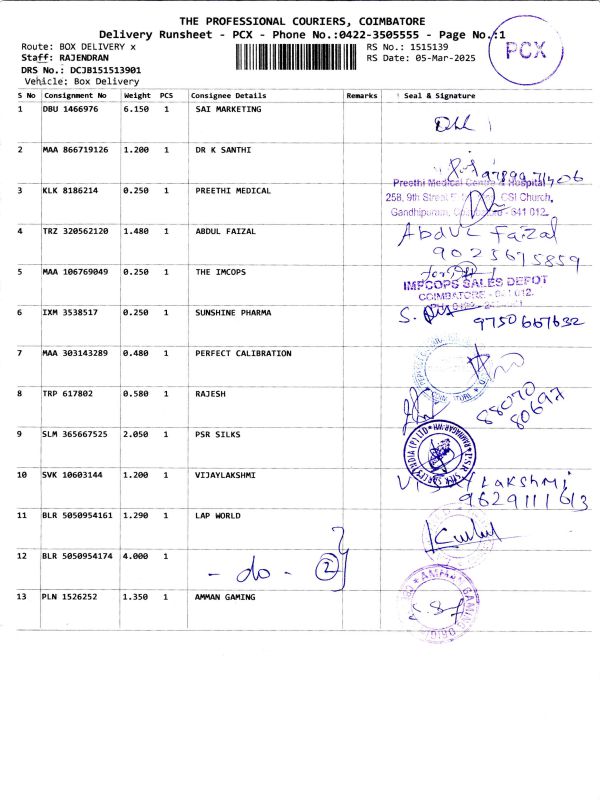 THE PROFESSIONAL COURIERS, COIMBATORE
Delivery Runsheet - PCX - Phone No.:0422-3505555 - Page No.:1
PCX
Route: BOX DELIVERY x
Staff: RAJENDRAN
DRS No.: DCJB151513901
Vehicle: Box Delivery
RS No.: 1515139
RS Date: 05-Mar-2025
S No Consignment No Weight PCS Consignee Details Remarks Seal & Signature
1 DBU 1466976 6.150 1 SAI MARKETING
2 MAA 866719126 1.200 1 DR K SANTHI
3 KLK 8186214 0.250 1 PREETHI MEDICAL
Preethi Medical Centre & Hospital
258, 9th Street CSI Church,
Gandhipuram, - 641 012.
4 TRZ 320562120 1.480 1 ABDUL FAIZAL
AbdUL FaiZal
9025675859
5 MAA 106769049 0.250 1 THE IMCOPS
IMPCOPS SALES DEPOT
COIMBATORE - 641 012.
6 IXM 3538517 0.250 1 SUNSHINE PHARMA
9750667632
7 MAA 303143289 0.480 1 PERFECT CALIBRATION
8 TRP 617802 0.580 1 RAJESH
88070
80697
9 SLM 365667525 2.050 1 PSR SILKS
10 SVK 10603144 1.200 1 VIJAYLAKSHMI
Lakshmi
9629111613
11 BLR 5050954161 1.290 1 LAP WORLD
12 BLR 5050954174 4.000 1
- do - 2
13 PLN 1526252 1.350 1 AMMAN GAMING
AMMAN GAMING